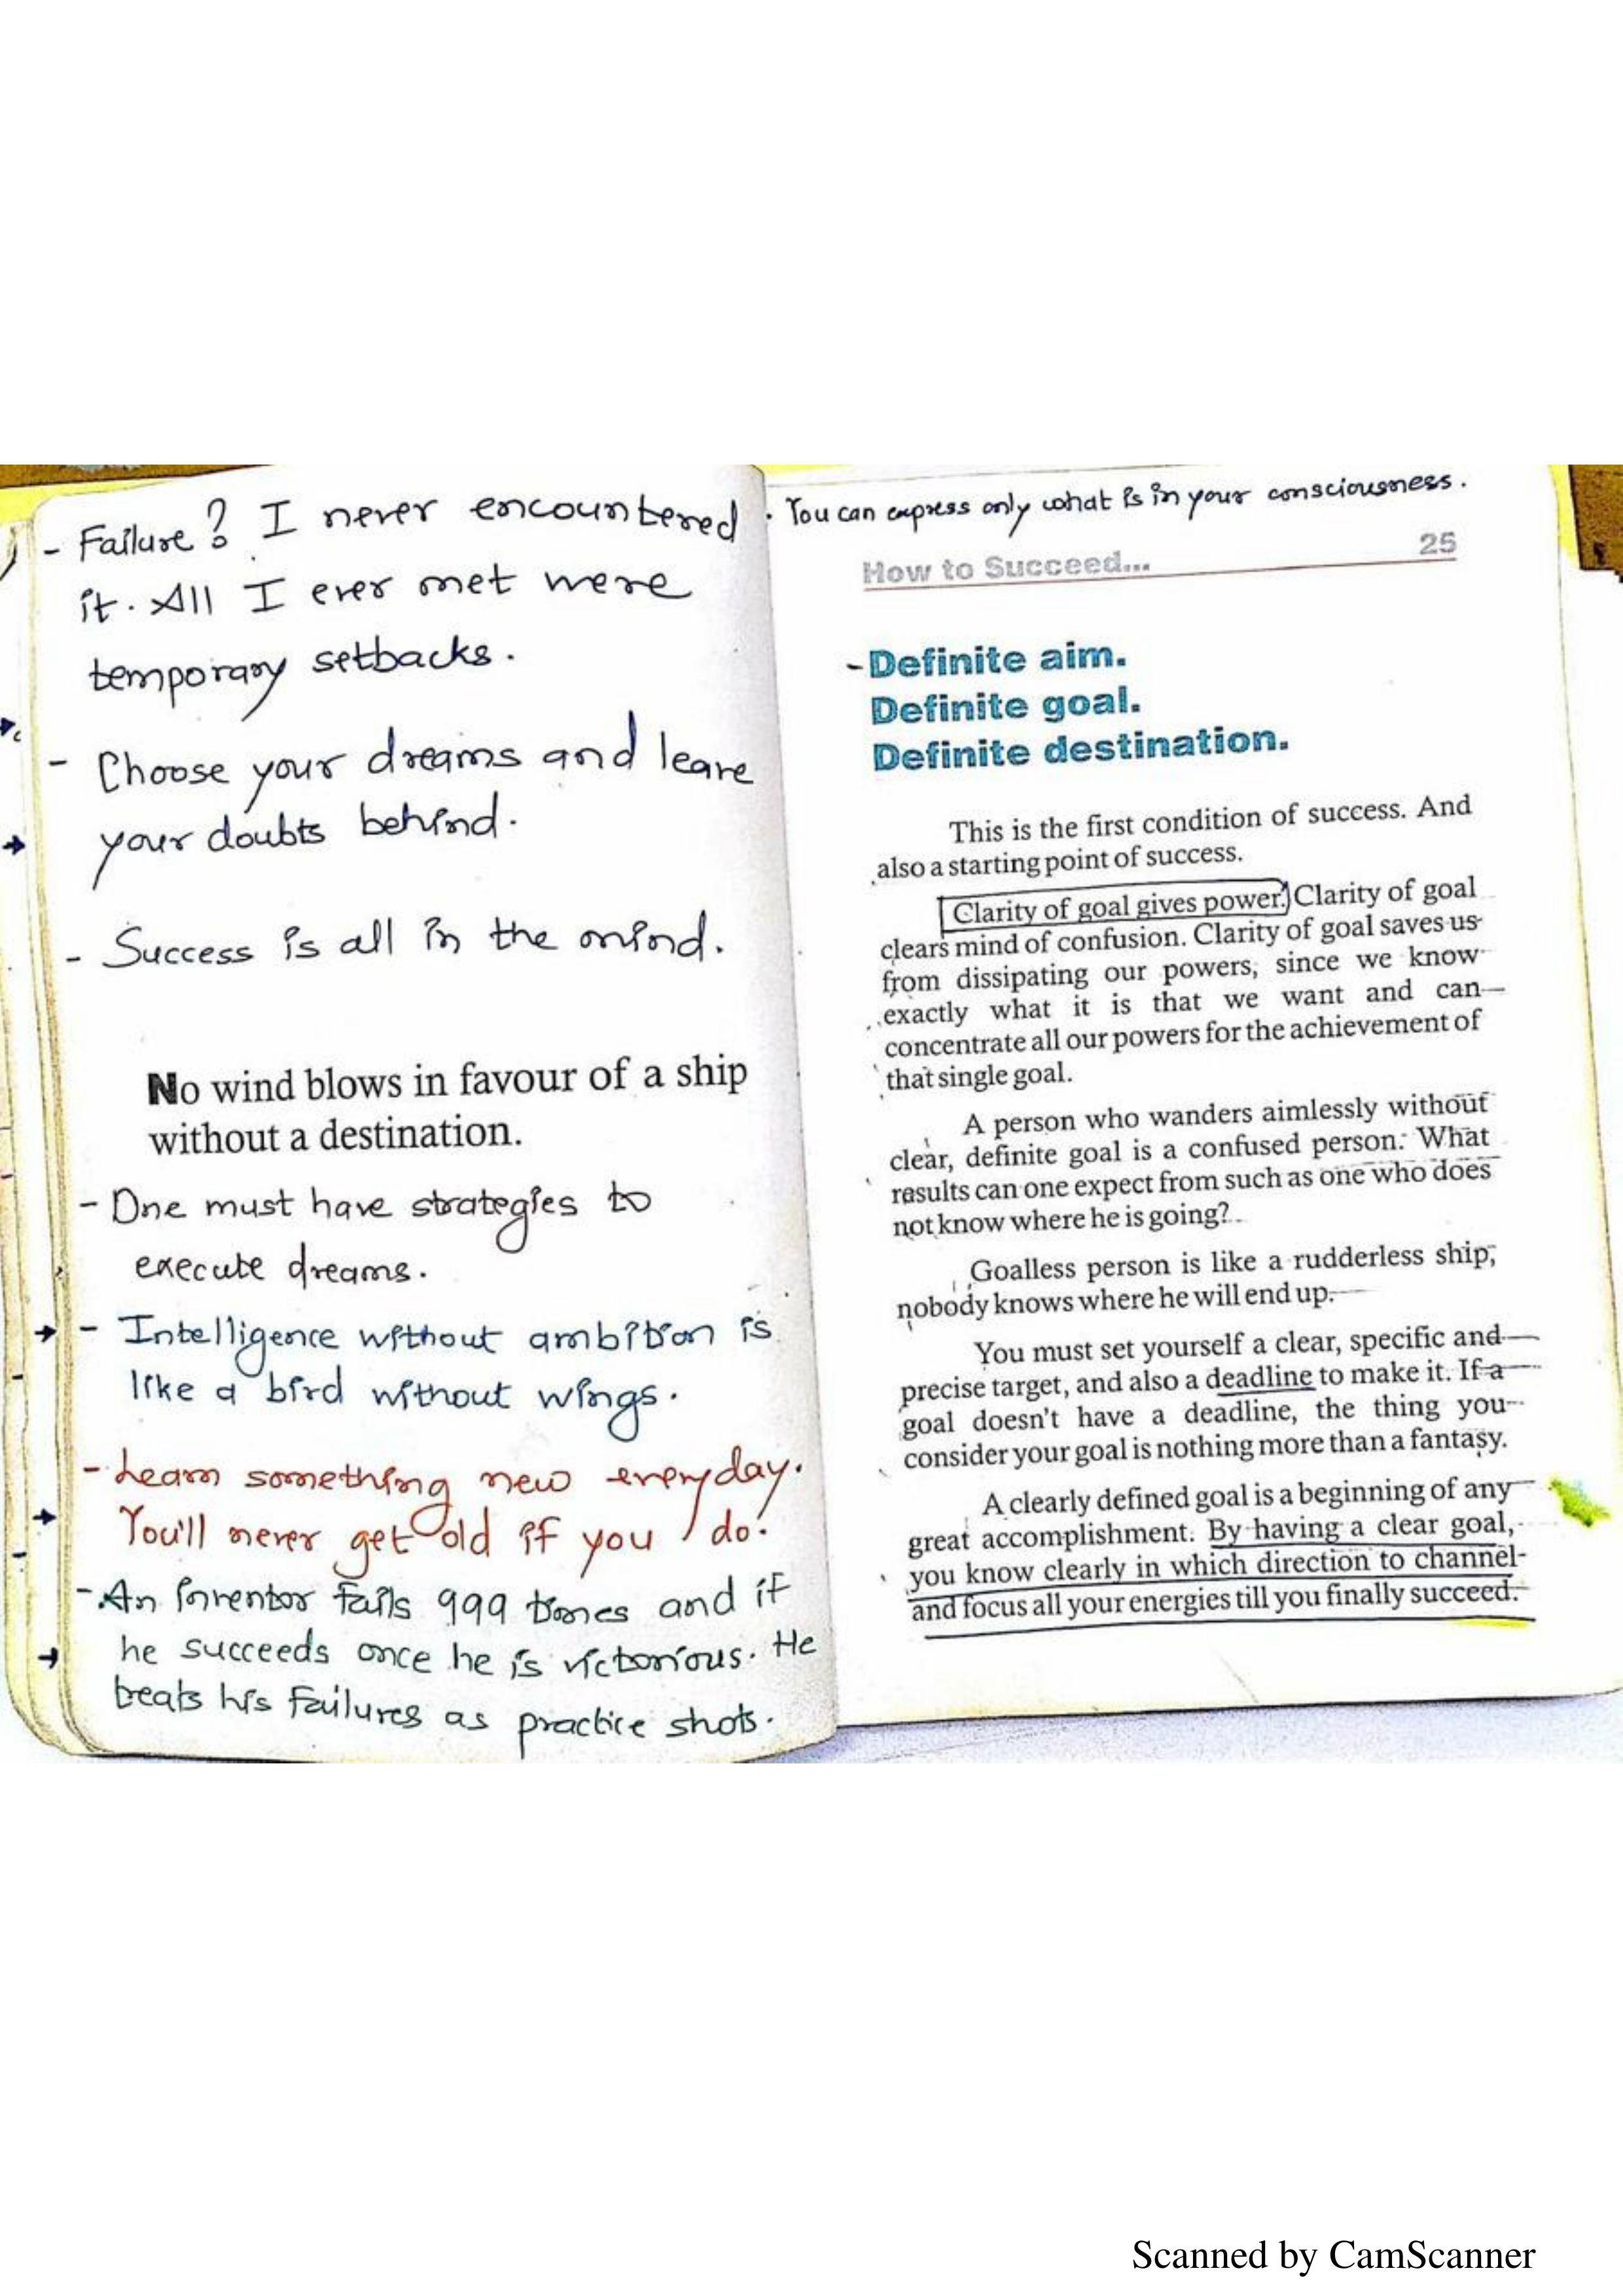 - Failure? I never encountered
it. All I ever met were
temporary setbacks.
- Choose your dreams and leave
your doubts behind.
- Success is all in the mind.
No wind blows in favour of a ship
without a destination.
- One must have strategies to
execute dreams.
- Intelligence without ambition is
like a bird without wings.
- Learn something new everyday.
You'll never get old if you do!
- An inventor fails 999 times and if
he succeeds once he is victorious. He
treats his failures as practice shots.
· You can express only what is in your consciousness.
How to Succeed... 25
- Definite aim.
Definite goal.
Definite destination.
This is the first condition of success. And
also a starting point of success.
Clarity of goal gives power. Clarity of goal
clears mind of confusion. Clarity of goal saves us
from dissipating our powers, since we know
exactly what it is that we want and can
concentrate all our powers for the achievement of
that single goal.
A person who wanders aimlessly without
clear, definite goal is a confused person. What
results can one expect from such as one who does
not know where he is going?
Goalless person is like a rudderless ship,
nobody knows where he will end up.
You must set yourself a clear, specific and
precise target, and also a deadline to make it. If a
goal doesn't have a deadline, the thing you
consider your goal is nothing more than a fantasy.
A clearly defined goal is a beginning of any
great accomplishment. By having a clear goal,
you know clearly in which direction to channel
and focus all your energies till you finally succeed.
Scanned by CamScanner